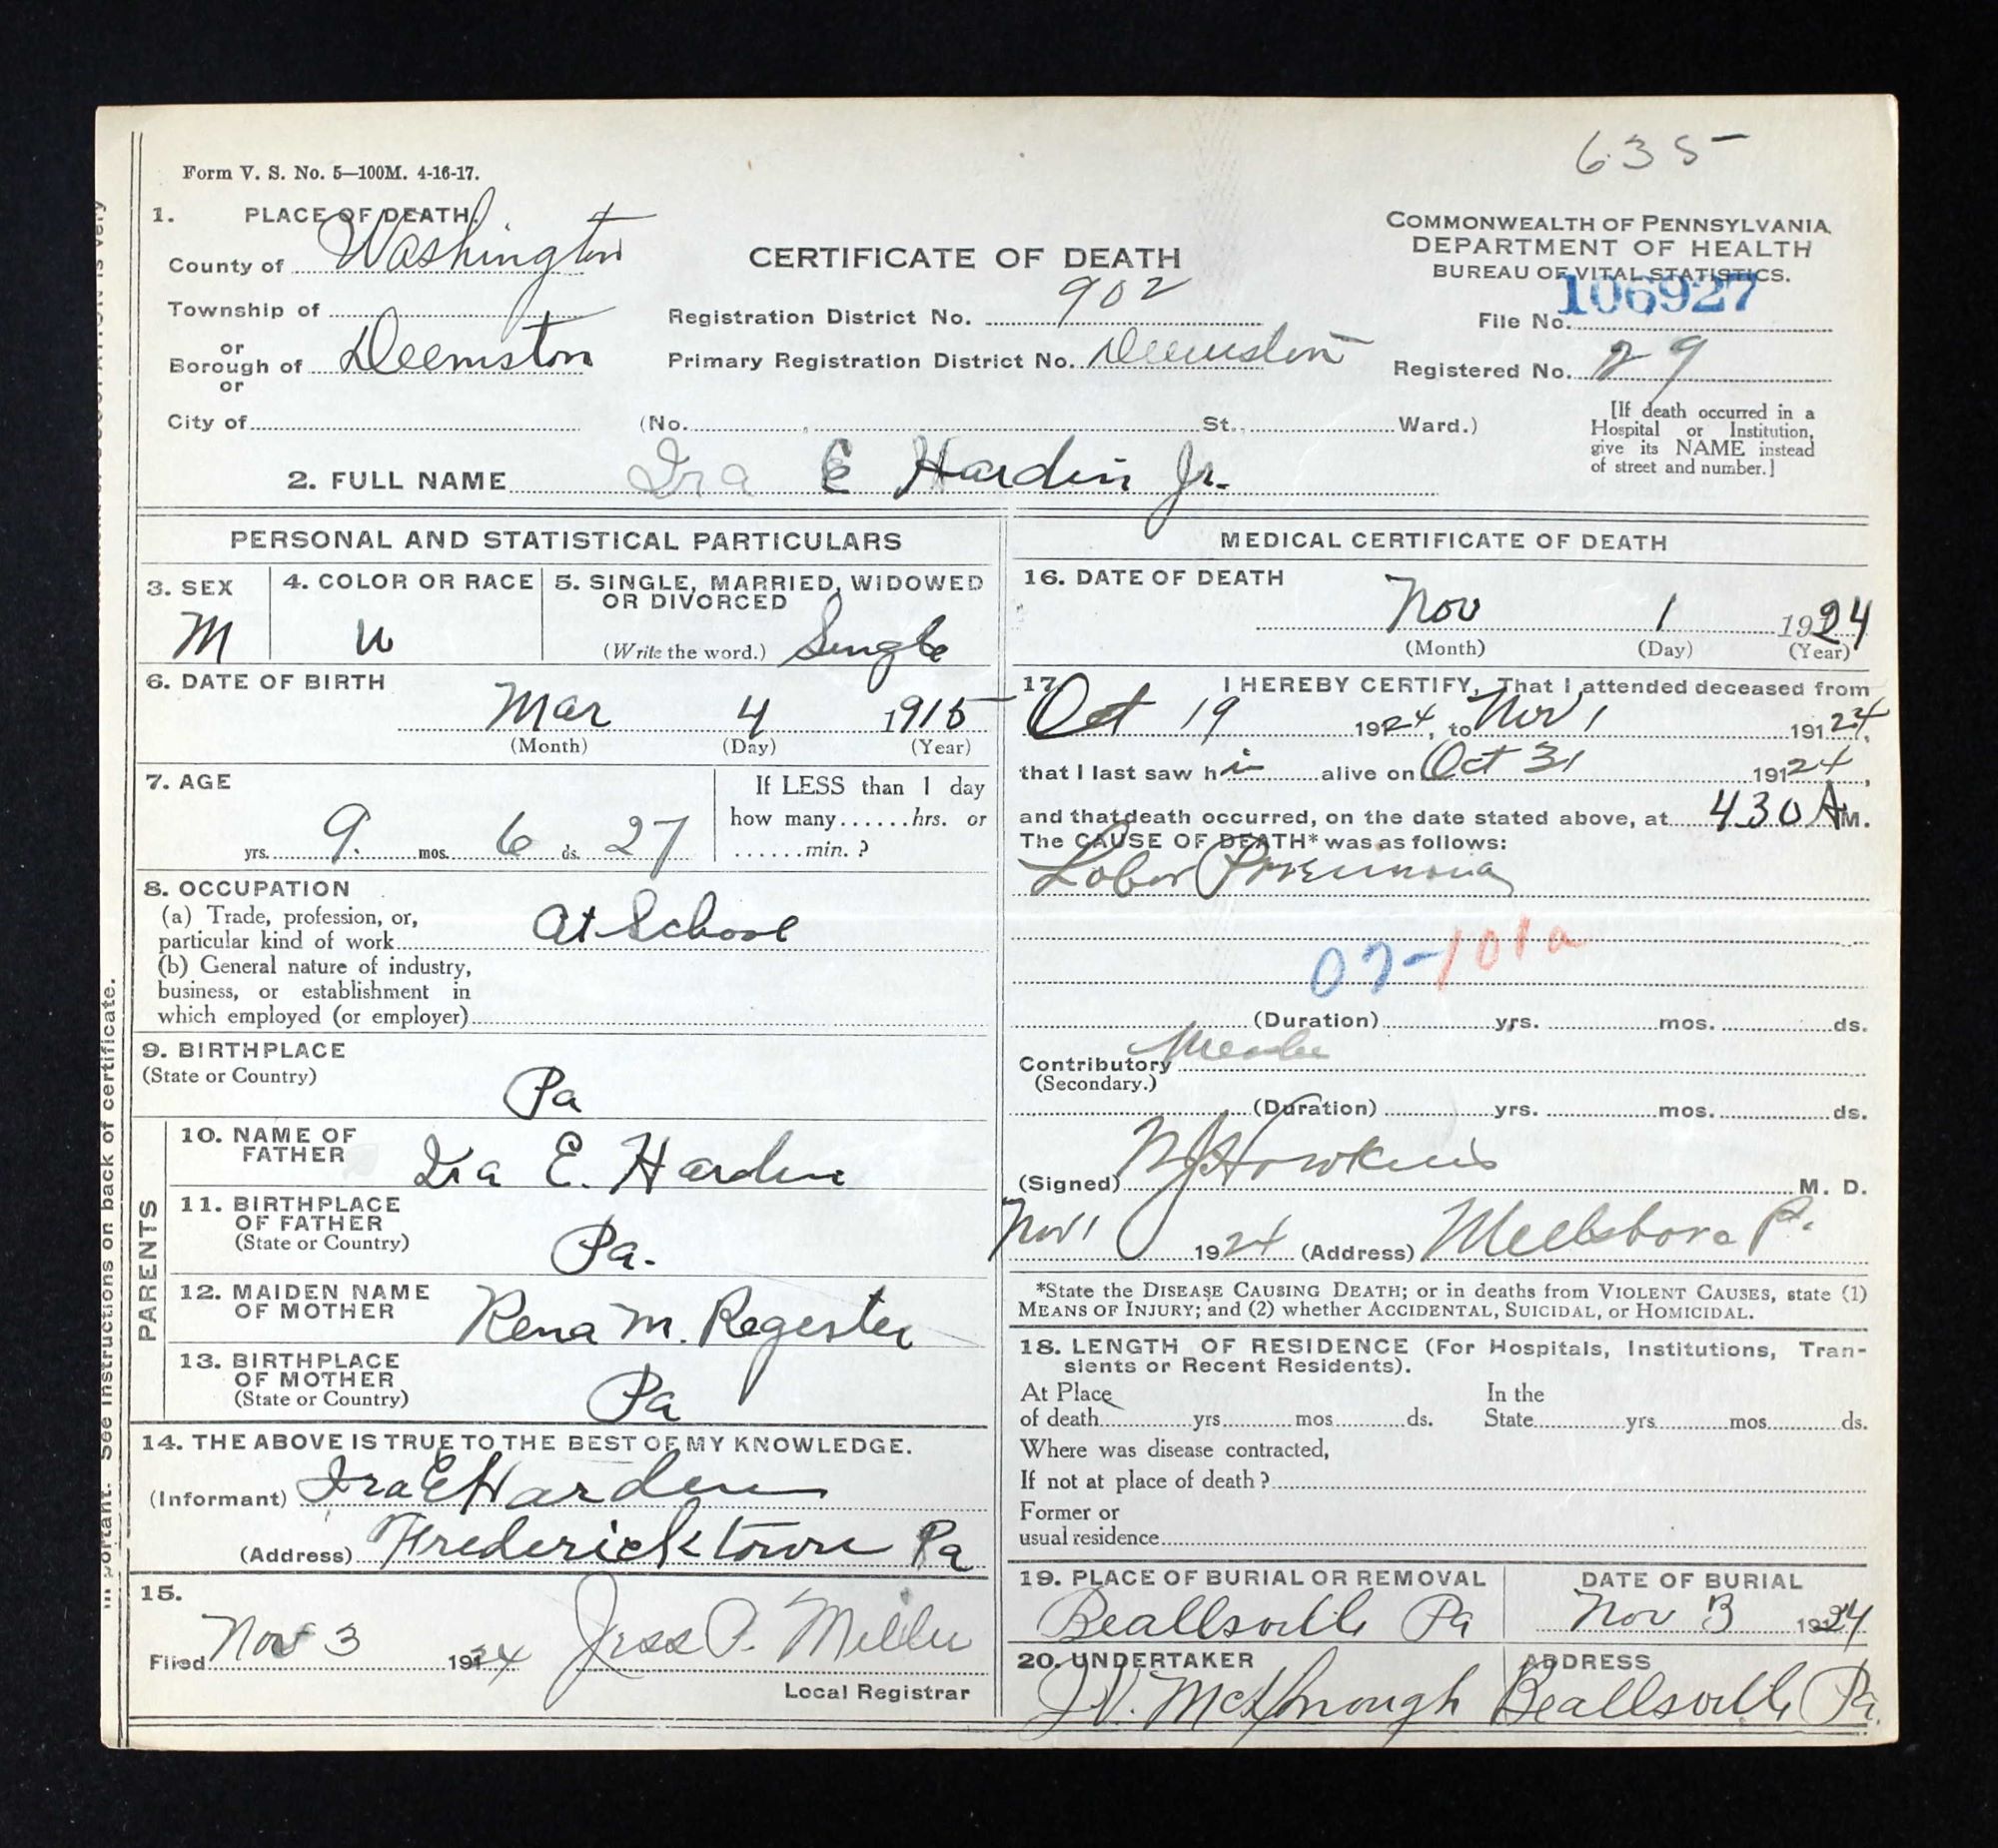 635-
Form V. S. No. 5—100M. 4-16-17.
1. PLACE OF DEATH.
County of Washington
Township of
or
Borough of Deemston
or
City of
CERTIFICATE OF DEATH
Registration District No. 902
Primary Registration District No. Deemston
(No. , St., Ward.)
COMMONWEALTH OF PENNSYLVANIA
DEPARTMENT OF HEALTH
BUREAU OF VITAL STATISTICS.
File No. 106927
Registered No. 29
[If death occurred in a
Hospital or Institution,
give its NAME instead
of street and number.]
2. FULL NAME Ira E Hardin Jr.
PERSONAL AND STATISTICAL PARTICULARS
3. SEX
M
4. COLOR OR RACE
W
5. SINGLE, MARRIED, WIDOWED
OR DIVORCED
(Write the word.) Single
6. DATE OF BIRTH
Mar 4 1915
(Month) (Day) (Year)
7. AGE
yrs. 9 mos. 6 ds. 27
If LESS than 1 day
how many......hrs. or
......min. ?
8. OCCUPATION
(a) Trade, profession, or,
particular kind of work At School
(b) General nature of industry,
business, or establishment in
which employed (or employer)
9. BIRTHPLACE
(State or Country)
Pa
PARENTS
10. NAME OF
FATHER
Ira E. Hardin
11. BIRTHPLACE
OF FATHER
(State or Country)
Pa.
12. MAIDEN NAME
OF MOTHER
Rena M. Regester
13. BIRTHPLACE
OF MOTHER
(State or Country)
Pa
14. THE ABOVE IS TRUE TO THE BEST OF MY KNOWLEDGE.
(Informant) Ira E Harden
(Address) Fredericktown Pa
15.
Filed Nov 3 1924 Jess P. Miller
Local Registrar
MEDICAL CERTIFICATE OF DEATH
16. DATE OF DEATH
Nov 1 1924
(Month) (Day) (Year)
17. I HEREBY CERTIFY, That I attended deceased from
Oct 19 1924, to Nov 1 19124,
that I last saw hi alive on Oct 31 19124,
and that death occurred, on the date stated above, at 430 A M.
The CAUSE OF DEATH* was as follows:
Lobar Pneumonia
07-101a
(Duration) yrs. mos. ds.
Contributory Measles
(Secondary.)
(Duration) yrs. mos. ds.
(Signed) Hawkins M. D.
Nov 1 1924 (Address) Millsboro Pa.
*State the DISEASE CAUSING DEATH; or in deaths from VIOLENT CAUSES, state (1)
MEANS OF INJURY; and (2) whether ACCIDENTAL, SUICIDAL, or HOMICIDAL.
18. LENGTH OF RESIDENCE (For Hospitals, Institutions, Tran-
sients or Recent Residents).
At Place
of death yrs mos ds.
In the
State yrs mos ds.
Where was disease contracted,
If not at place of death ?
Former or
usual residence
19. PLACE OF BURIAL OR REMOVAL
Beallsville Pa
DATE OF BURIAL
Nov 3 1924
20. UNDERTAKER
J.V. McDonough
ADDRESS
Beallsville Pa.
portant. See instructions on back of certificate.